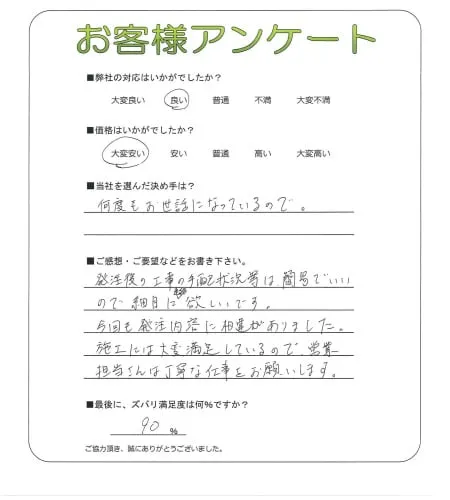 お客様アンケート
■弊社の対応はいかがでしたか？
大変良い 良い 普通 不満 大変不満
■価格はいかがでしたか？
大変安い 安い 普通 高い 大変高い
■当社を選んだ決め手は？
何度もお世話になっているので。
■ご感想・ご要望などをお書き下さい。
発注後の工事の手配状況等は簡易でいい
ので細目に欲しいです。
今回も発注内容に相違がありました。
施工には大変満足しているので、営業
担当さんは丁寧な仕事をお願いします。
■最後に、ズバリ満足度は何%ですか？
90 %
ご協力頂き、誠にありがとうございました。